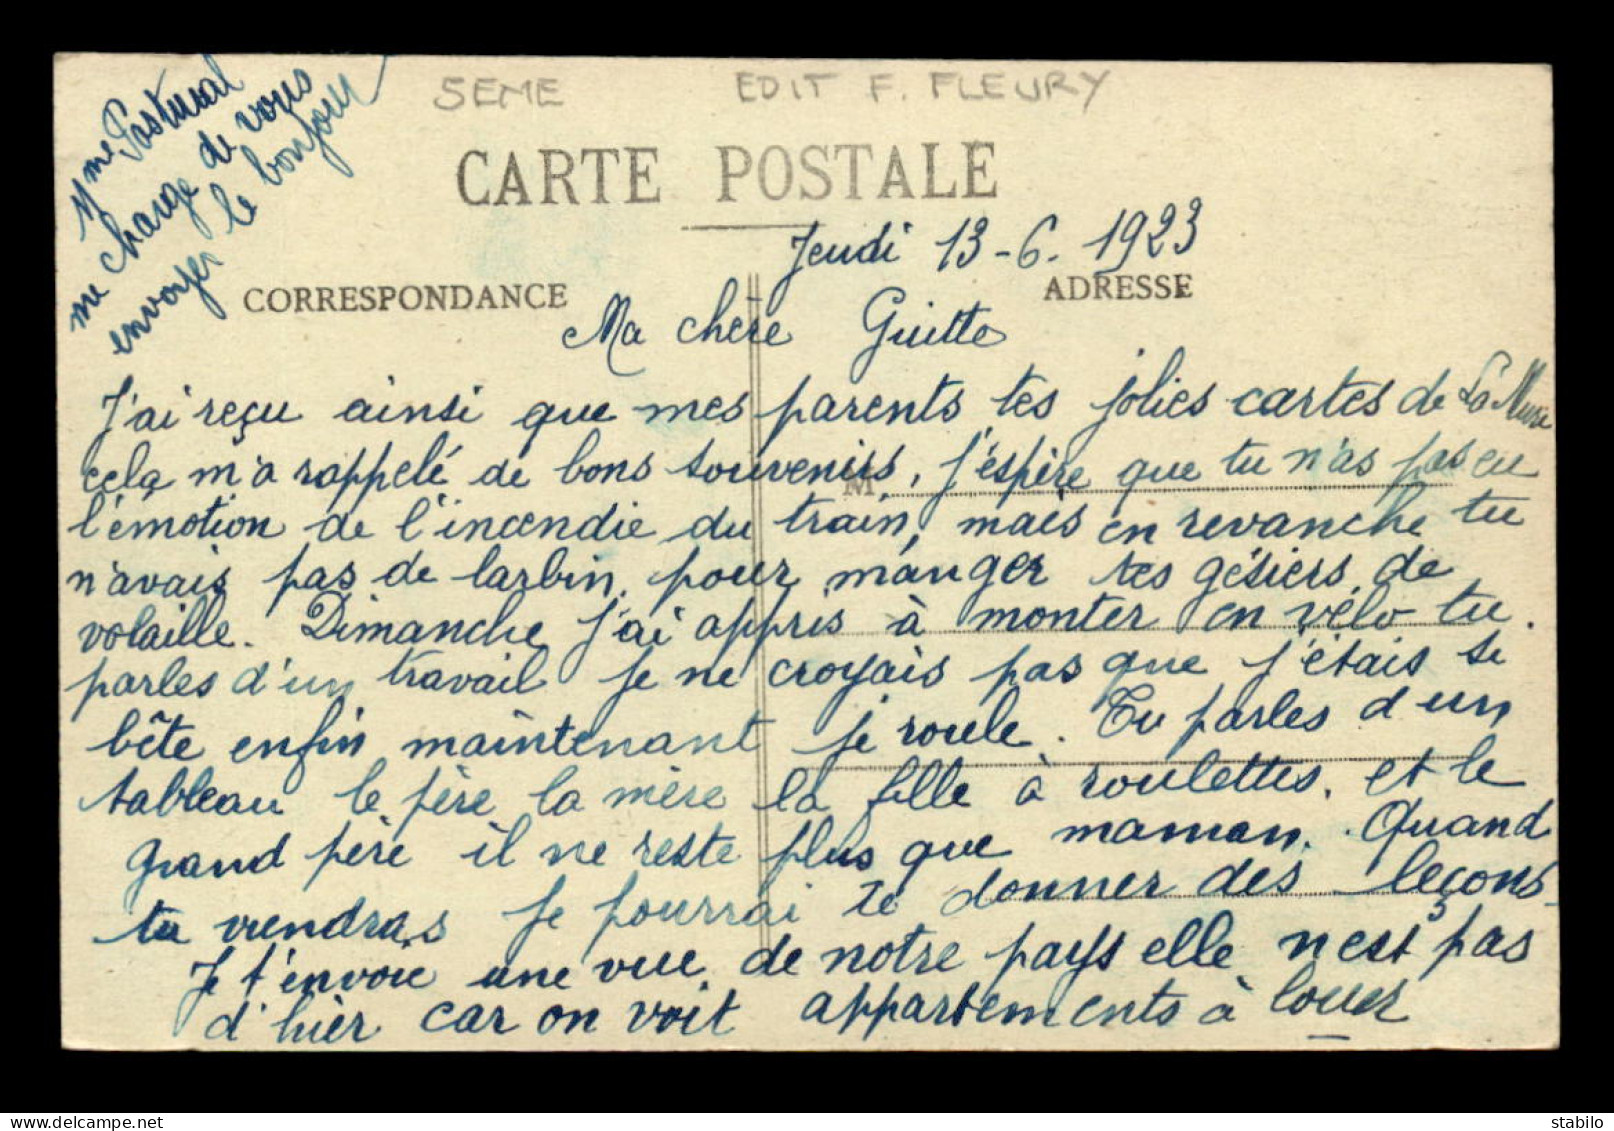 5EME EDIT F. FLEURY
Mme Pastural
me charge de vous
envoyer le bonjour
CARTE POSTALE
Jeudi 13-6. 1923
CORRESPONDANCE
ADRESSE
Ma chère Guitte
J'ai reçu ainsi que mes parents tes jolies cartes de La Mure
cela m'a rappelé de bons souvenirs, j'éspère que tu n'as pas eu
M
l'émotion de l'incendie du train, mais en revanche tu
n'avais pas de larbin, pour manger tes gésiers de
volaille. Dimanche j'ai appris à monter en vélo tu
parles d'un travail je ne croyais pas que j'étais si
bête enfin maintenant je roule. Tu parles d'un
tableau le père la mère la fille à roulettes. et le
grand père il ne reste plus que maman. Quand
tu viendras je pourrai te donner des leçons.
Je t'envoie une vue de notre pays elle n'est pas
d'hier car on voit appartements à louer
delcampe.net
stabilo